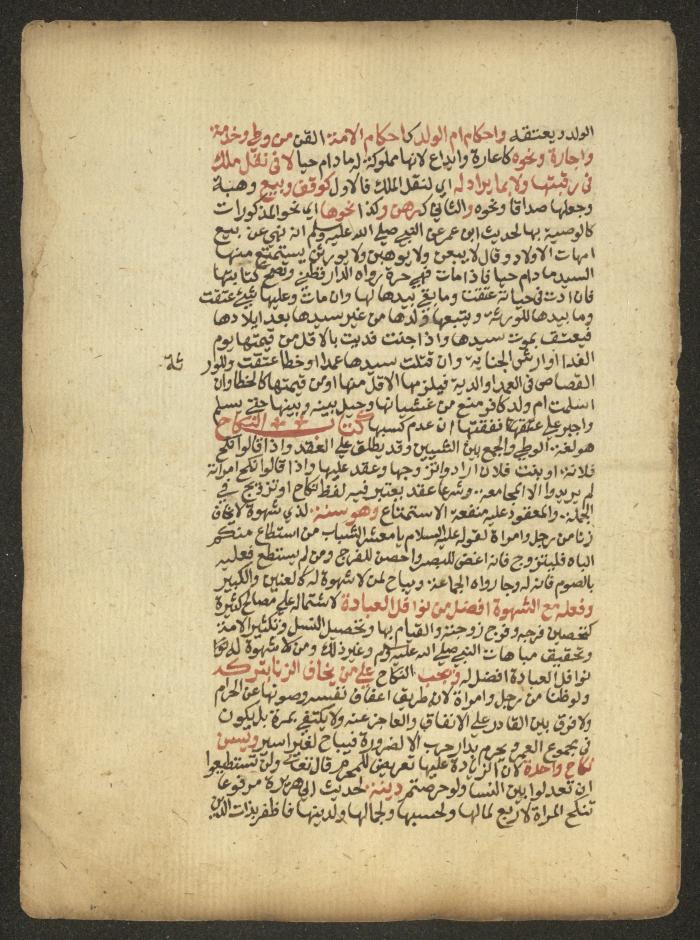 الولد ويعتقه واحكام ام الولد كاحكام الامة القن من وطي وخدمة
واجارة ونحوه كاعارة وايداع لانها مملوكة له مادام حيا لا في نقل ملك
في رقبتها ولا بما يراد له اي لنقل الملك فالاول كوقف وبيع وهبة
وجعلها صداقا ونحوه والثاني كرهن وكذا نحوها اي نحو المذكورات
كالوصية بها لحديث ابن عمر عن النبي صلى الله عليه وسلم انه نهى عن بيع
امهات الاولاد وقال لا يبعن ولا يوهبن ولا يورثن يستمتع منها
السيد مادام حيا فاذا مات فهي حرة رواه الدارقطني وتصح كتابتها
فان ادت في حياته عتقت وما بقي بيدها لها وان مات وعليها شيء عتقت
وما بيدها للورثة ويتبعها ولدها من غير سيدها بعد ايلادها
فيعتق بموت سيدها واذا جنت فديت بالاقل من قيمتها يوم
الفدا او ارش الجناية وان قتلت سيدها عمدا او خطا عتقت وللور ثة
القصاص في العمد او الدية فيلزمها الاقل منها او من قيمتها كالخطا وان
اسلمت ام ولد كافر منع من غشيانها وحيل بينه وبينها حتى يسلم
واجبر على نفقتها ان عدم كسبها كتاب النكاح
هو لغة الوطي والجمع بين الشيئين وقد يطلق على العقد واذا قالوا نكح
فلانة او بنت فلان ارادوا تزوجها وعقد عليها واذا قالوا نكح امراته
لم يريدوا الا المجامعة وشرعا عقد يعتبر فيه لفظ نكاح او تزويج في
الجملة والمعقود عليه منفعة الاستمتاع وهو سنة لذي شهوة لا يخاف
زنا من رجل وامراة لقوله عليه السلام يا معشر الشباب من استطاع منكم
الباه فليتزوج فانه اغض للبصر واحصن للفرج ومن لم يستطع فعليه
بالصوم فانه له وجا رواه الجماعة ويباح لمن لا شهوة له كالعنين والكبير
وفعله مع الشهوة افضل من نوافل العبادة لاشتماله على مصالح كثيرة
كتحصين فرجه وفرج زوجته والقيام بها وتحصيل النسل وتكثير الامة
وتحقيق مباهات النبي صلى الله عليه وسلم وغير ذلك ومن لا شهوة له
نوافل العبادة افضل له ويجب النكاح على من يخاف الزنا بتركه
ولو ظنا من رجل وامراة لانه طريق اعفاف نفسه وصونها عن الحرام
ولا فرق بين القادر على الانفاق والعاجز عنه ولا يكتفي بمرة بل يكون
في مجموع العمر ويحرم بدار حرب الا لضرورة فيباح لغير اسير ويسن
نكاح واحدة لان الزيادة عليها تعريض للمحرم قال تعالى ولن تستطيعوا
ان تعدلوا بين النسا ولو حرصتم دينة لحديث ابي هريرة مرفوعا
تنكح المراة لاربع لمالها ولحسبها ولجمالها ولدينها فاظفر بذات الدين